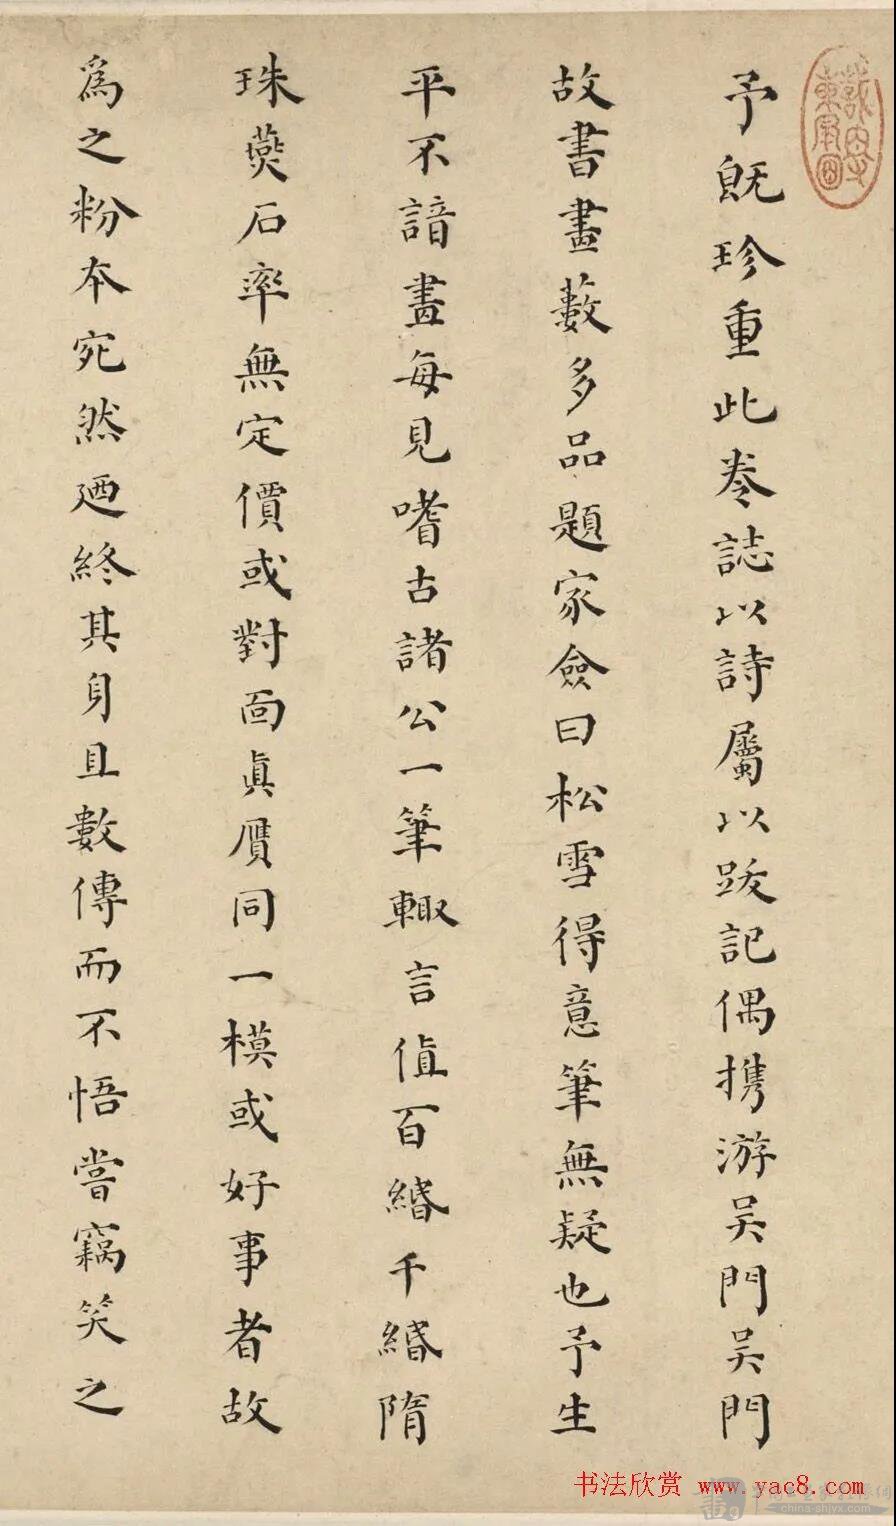 予既珍重此卷誌以詩屬以跋記偶携游吴門吴門
故書畫藪多品題家僉曰松雪得意筆無疑也予生
平不諳畫每見嗜古諸公一筆輙言值百緡千緡隋
珠燕石率無定價或對面真贋同一模或好事者故
為之粉本宛然廼終其身且數傳而不悟嘗竊笑之
书法欣赏 www.yac8.com
china-shjyx.com